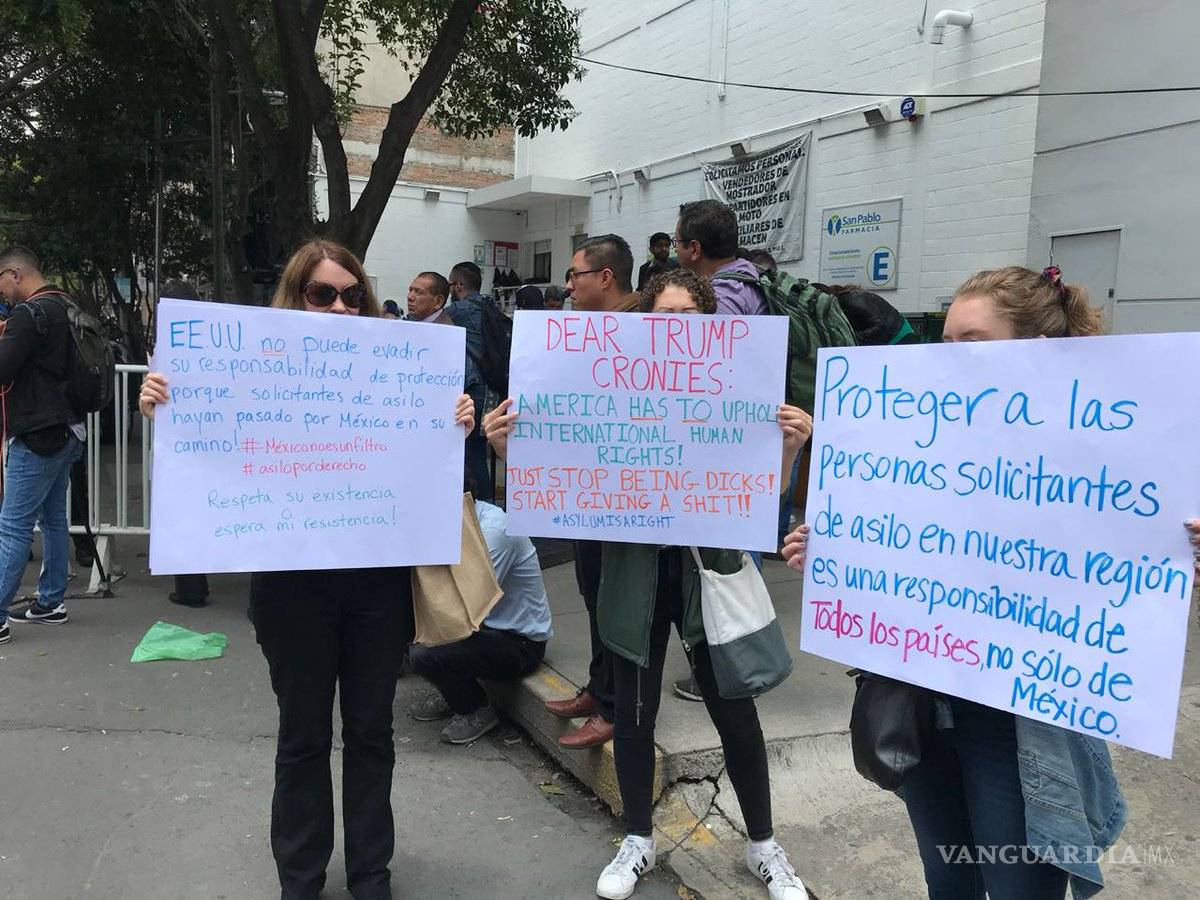 EE.U.U. no puede evadir
su responsabilidad de protección
porque solicitantes de asilo
hayan pasado por México en su
camino! #Méxiconoesunfiltro
#asiloporderecho
Respeta su existencia
o
espera mi resistencia!
DEAR TRUMP
CRONIES:
AMERICA HAS TO UPHOLD
INTERNATIONAL HUMAN
RIGHTS!
JUST STOP BEING DICKS!
START GIVING A SHIT!!
#ASYLUMISARIGHT
Proteger a las
personas solicitantes
de asilo en nuestra región
es una responsibilidad de
Todos los países, no sólo de
México.
SOLICITAMOS PERSONAL
VENDEDORES DE
MOSTRADOR
REPARTIDORES EN
MOTO
San Pablo
FARMACIA
E
ADT
VANGUARDIA MX